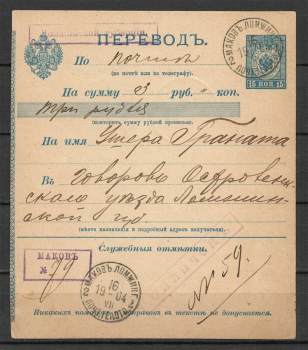 ПЕРЕВОДЪ.
По почтѣ
(по почтѣ или по телеграфу)
На сумму 3 руб. " коп.
три рубля
(повторить сумму рублей прописью)
На имя Граната
15 КОП 15
Въ Говорово Островен
скаго уѣзда Ломжин
ской губ.
(мѣсто назначенія и подробный адресъ получателя).
Служебныя отмѣтки.
МАКОВЪ
№ 79
МАКОВЪ ЛОМЖИН.
16
19 04
VII
№ 59.
Никакихъ помарокъ и поправокъ въ текстѣ не допускается.